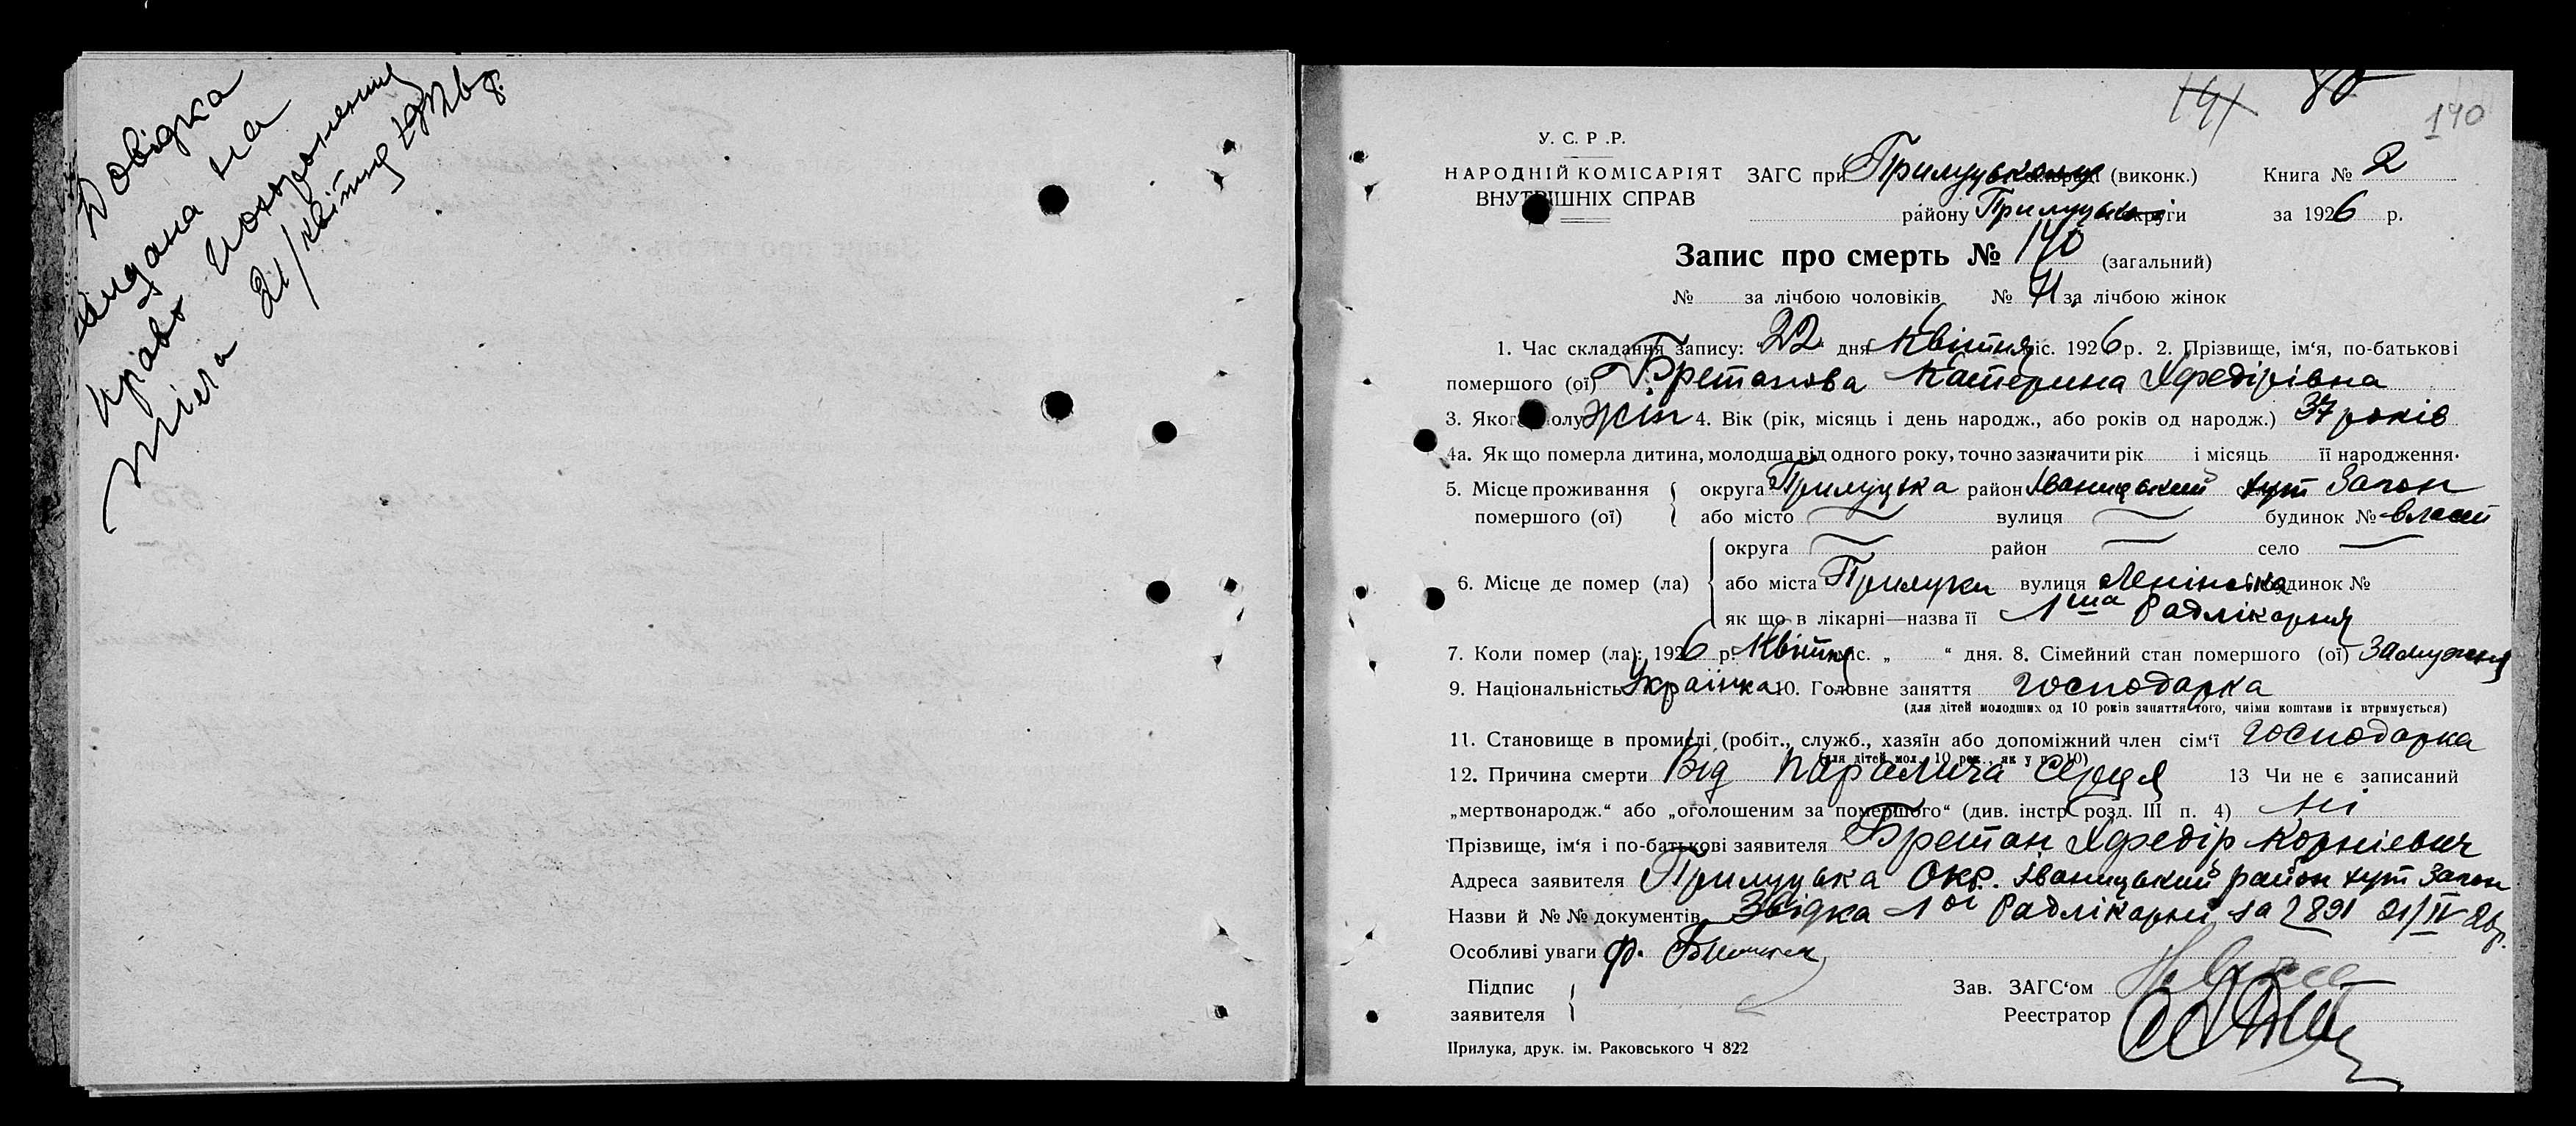 Довідка
видана на
право похоронення
тіла 21/квітня 1926 р.
141
80
140
У. С. Р .Р.
НАРОДНІЙ КОМІСАРІЯТ
ВНУТРІШНІХ СПРАВ
ЗАГС при Прилуцькому (виконк.)
Книга № 2
району Прилуцької округи
за 1926 р.
Запис про смерть № 140 (загальний)
№ за лічбою чоловіків № 71 за лічбою жінок
1. Час складання запису: „22“ дня Квітня міс. 1926 р. 2. Прізвище, ім‘я, по-батькові
померлого (ої) Бретанова Катерина Хфедірівна
3. Якого полу жін 4. Вік (рік, місяць і день народж., або років од народж.) 37 років
4а. Як що померла дитина, молодша від одного року, точно зазначити рік і місяць її народження.
5. Місце проживання померлого (ої) округа Прилуцька район Іваницький хут Загон
або місто вулиця будинок № власн
6. Місце де помер (ла) округа район село
або міста Прилуки вулиця Ленінська будинок №
як що в лікарні—назва її 1ша Радлікарня
7. Коли помер (ла): 1926 р. Квітня міс. „ “ дня. 8. Сімейний стан померлого (ої) Замужня
9. Національність Українка 10. Головне заняття господарка
(для дітей молодших од 10 років заняття того, чиїми коштами їх втримується)
11. Становище в промислі (робіт., служб., хазяїн або допоміжний член сім‘ї господарка
(для дітей мол. 10 рок., як у п. 10)
12. Причина смерти Від параліча серця 13 Чи не є записаний
„мертвонародж.“ або „оголошеним за померлого“ (див. інстр розд. III п. 4) ні
Прізвище, ім‘я і по-батькові заявителя Бретан Хфедір Корнієвич
Адреса заявителя Прилуцька Окр. Іваницький район хут Загон
Назви й №№ документів Звідка 1ої Радлікарні за 2891 21/IV 26 р.
Особливі уваги Ф.
Підпис
заявителя
Зав. ЗАГС‘ом
Реестратор
Прилука, друк. ім. Раковського Ч 822